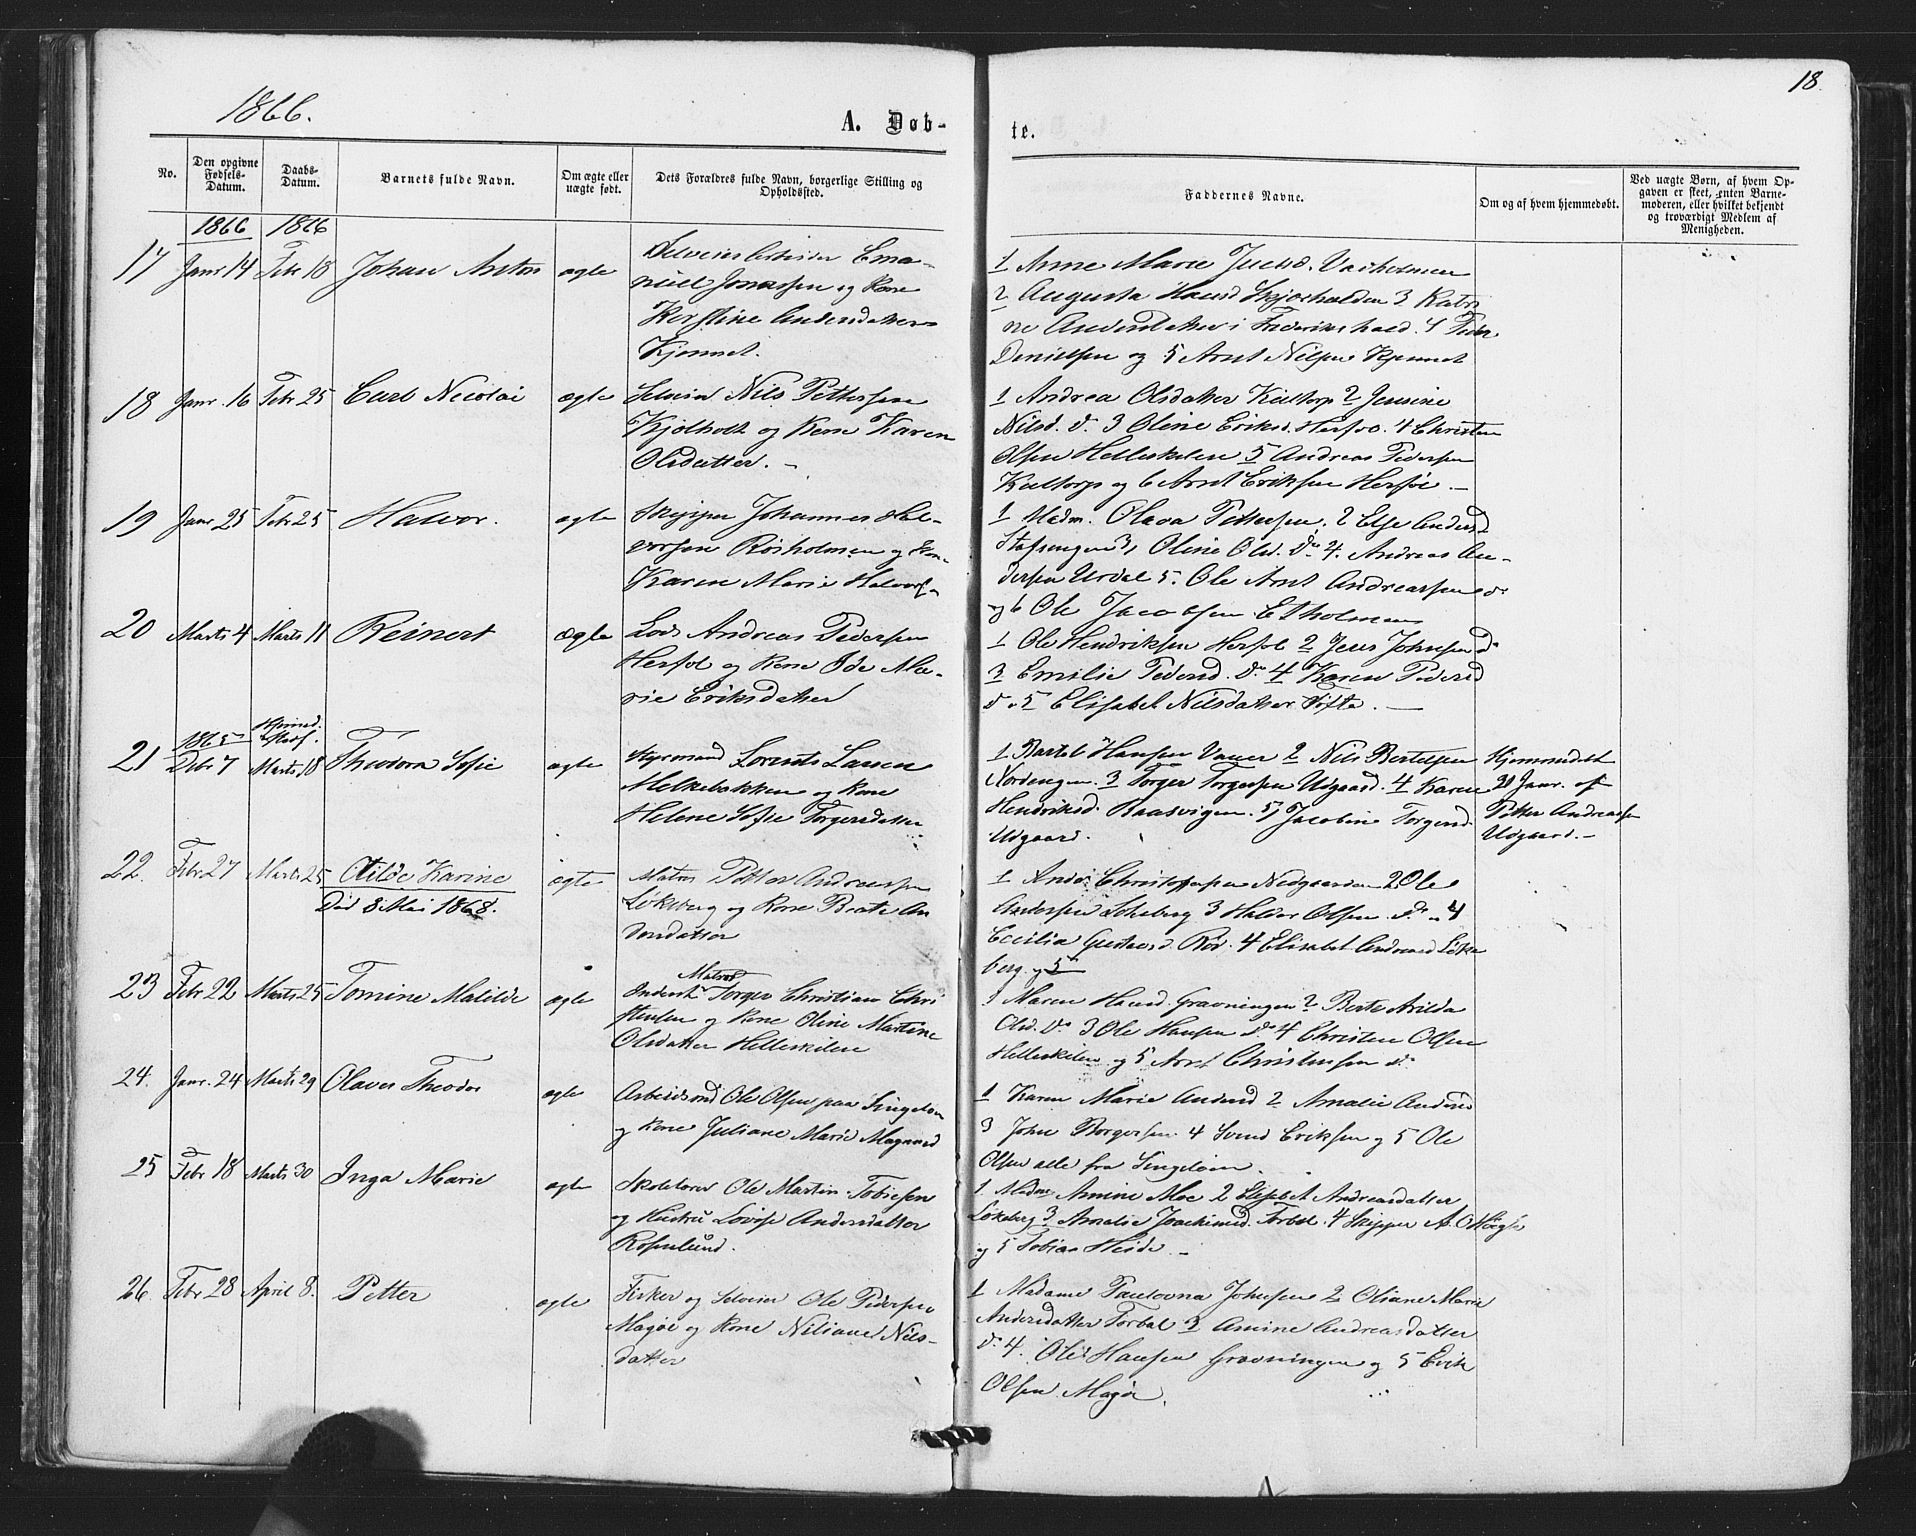 1866.
18.
A. Døb-
te.
No.
Den opgivne Fødsels-Datum.
Daabs-Datum.
Barnets fulde Navn.
Om ægte eller uægte født.
Dets Forældres fulde Navn, borgerlige Stilling og Opholdssted.
Faddernes Navne.
Om og af hvem hjemmedøbt.
Ved uægte Børn, af hvem Opgaven er skeet, enten Barnemoderen, eller hvilket bekjendt og troværdigt Medlem af Menigheden.
1866 1866
17 Janr 14 Febr 18 Johan Anton ægte
Selveier Ema-
nuel Jonassen og Kone
Kerstine Andersdatter
Kjønnet.
1 Anne Marie
2 Augusta Hansd Skjærhalden 3 Katri
ne Andersdatter i Frederikshald. 4 Peder
Danielsen og 5 Arnt Nilsen Kjønnet
18 Janr. 16 Febr 25 Carl Nicolai ægte
Selveier Nils Pettersen
Kjølholt og Kone Karen
Olsdatter. -
1 Andrea Olsdatter Kiltorp 2 Jensine
Nilsd. do 3 Oline Eriksd. Herføl. 4 Christen
Olsen Helleskilen 5 Andreas Pedersen
Kiltorp og 6 Arnt Eriksen Herføl. -
19 Janr 25 Febr 25 Halvor. ægte
Skipper Johannes Hal-
vorsen Røsholmen og Kone
Karen Marie Halvors
1 Madm. Olava Pettersen. 2 Else Andersd
Stafsengen 3, Oline Olsd. do 4. Andreas An-
dersen Urdal 5. Ole Arnt Andreassen do
og 6 Ole Jacobsen Ekholmen
20 Marts 4 Marts 11 Reinert ægte
Lods Andreas Pedersen
Herføl og Kone Ide Ma-
rie Eriksdatter
1 Ole Hendriksen Herføl 2 Jens Johnsen do
3 Emilie Pedersd. do 4 Karen Pedersd
do 5 Elisabet Nilsdatter Tofte. -
21 1865 Debr 7 Marts 18 Theodora Sofie ægte
Styrmand Lorents Larsen
Melkebakken og Kone
Helene Sofie Torgersdatter
1 Bartel Hansen Vauer 2 Nils Bertelsen
Nordengen. 3 Torger Torgersen Udgaard. 4 Karen
Hendriksd. Baasvigen. 5, Jacobine Torgersd.
Udgaard.
Hjemmedøbt
31 Janr. af
Petter Andreassen
Udgaard. -
22. Febr 27 Marts 25 Otilde Karine ægte
Død 8 Mai 1868.
Matros Petter Andreassen
Løkeberg og Kone Berte An
dersdatter
1 Anders Christophersen Nedgaarden 2 Ole
Andersen Løkeberg 3 Haldor Olsen do 4
Cecilia Gustavsd. Rød. 4 Elisabet Andersd Løke
berg. og 5
23 Febr 22 Marts 25 Tomine Matilde ægte
Matros
Inderst Torger Christian Chri
stensen og Kone Oline Martine
Olsdatter Helleskilen
1 Maren Hansd. Gravningen 2 Berte Arilda
Olsd. do 3 Ole Hansen do 4 Christen Olsen
Helleskilen og 5 Arnt Christensen do
24. Janr. 24 Marts 29 Olaves Theodor ægte
Arbeidsmd Ole Olsen paa Singeløen
og Kone Juliane Marie Magnusd
1 Karen Marie Andersd 2 Amalie Andersd
3 John Borgersen 4 Svend Eriksen og 5 Ole
Olsen alle fra Singeløen.
25 Febr 18 Marts 30 Inga Marie ægte
Skolelærer Ole Martin Tobiesen
og Hustru Lovise Andersdatter
Roselund.
1. Madme Amine Moe 2 Elisabet Andreasdatter
Løkeberg 3 Amalie Joachimsd. Torbal. 4 Skipper A. O.
og 5 Tobias Heide. -
26. Febr 28 April 8. Petter ægte
Fisker og Selveier Ole Pedersen
Magøe og Kone Niliane Nils-
datter
1 Madame Paulovna Johnsen 2 Oliane Marie
Andersdatter Torbal 3 Amine Andreasdatter
do 4. Ole Hansen Gravningen og 5 Erik
Olsen Magøe.